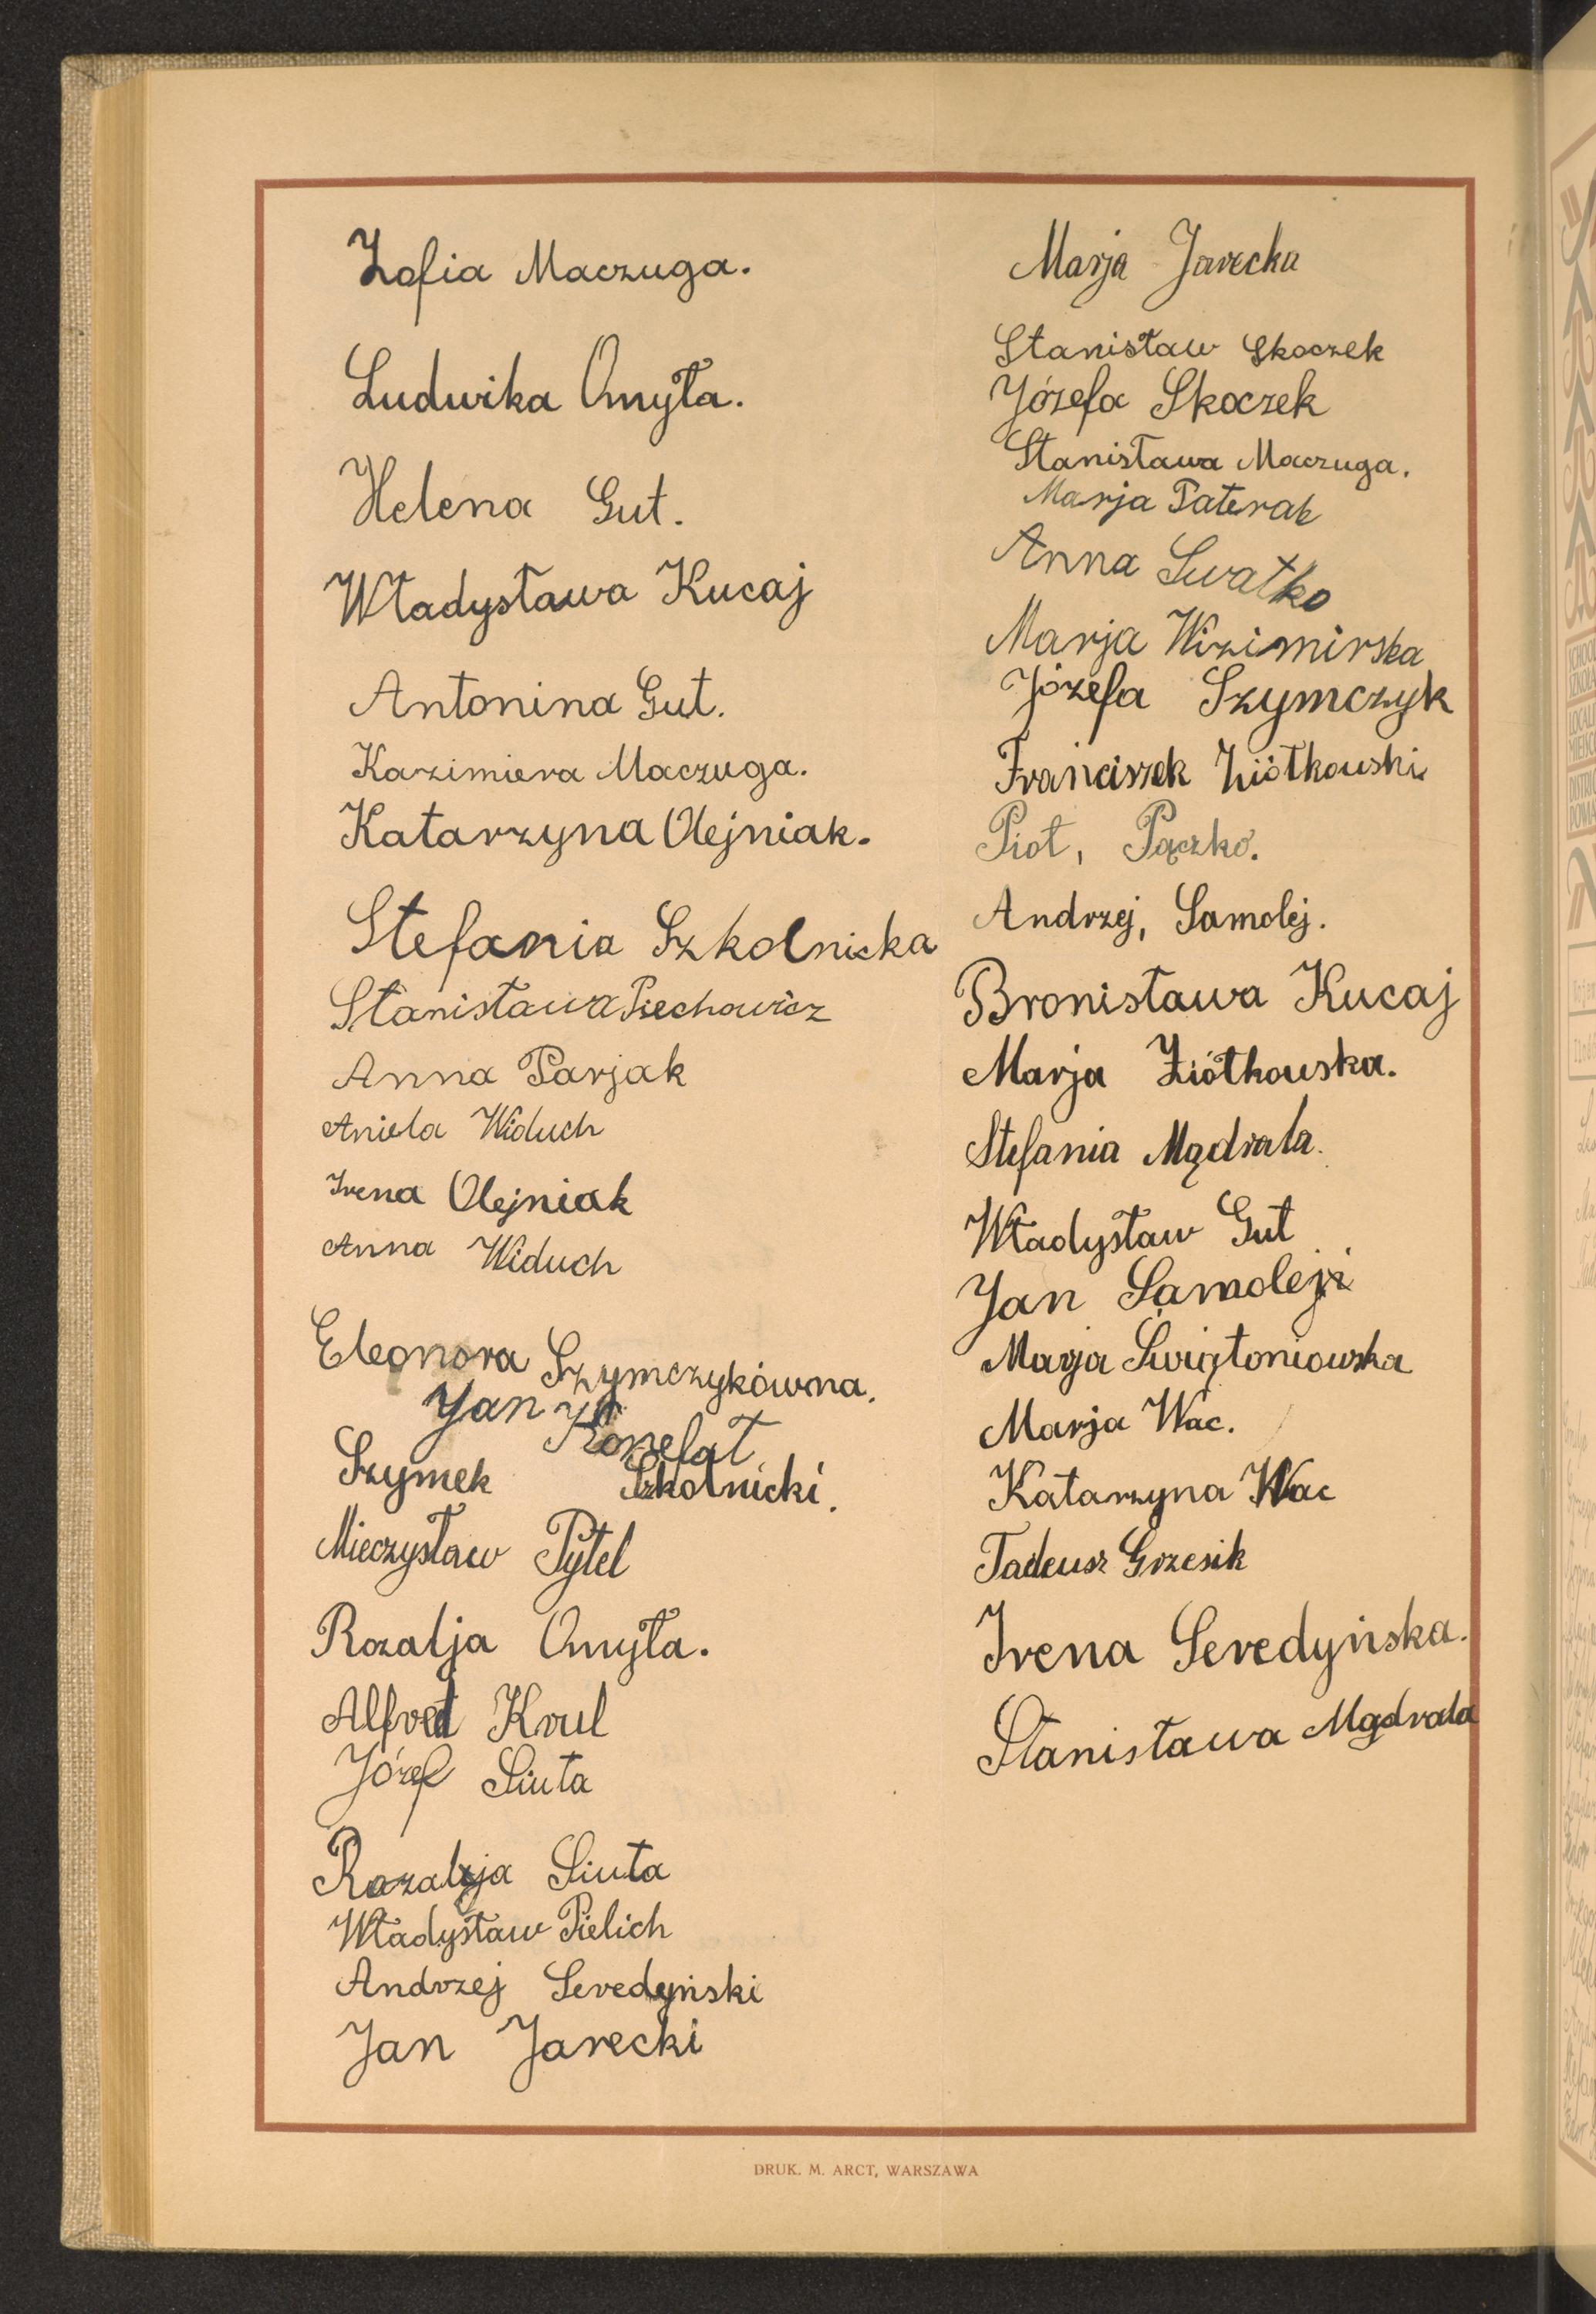 Zofia Maczuga.
Ludwika Omyła.
Helena Gut.
Władysława Kucaj
Antonina Gut.
Kazimiera Maczuga.
Katarzyna Olejniak.
Stefania Szkolnicka
Stanisława Piechowicz
Anna Parjak
Aniela Widuch
Irena Olejniak
Anna Widuch
Eleonora Szymczykówna.
Jan Konefał
Szymek Szkolnicki.
Mieczysław Pytel
Rozalja Omyła.
Alfred Krul
Józef Siuta
Rozalja Siuta
Władysław Pielich
Andrzej Seredyński
Jan Jarecki
Marja Jarecka
Stanisław Skoczek
Józefa Skoczek
Stanisława Maczuga.
Marja Paterak
Anna Swatko
Marja Wizimirska
Józefa Szymczyk
Franciszek Ziółkowski
Piot, Pączko.
Andrzej, Samolej.
Bronisława Kucaj
Marja Ziółkowska.
Stefania Mądrala.
Władysław Gut
Jan Samolej
Marja Świątoniowska
Marja Wac.
Katarzyna Wac
Tadeusz Grzesik
Irena Seredyńska.
Stanisława Mądrala
DRUK. M. ARCT, WARSZAWA